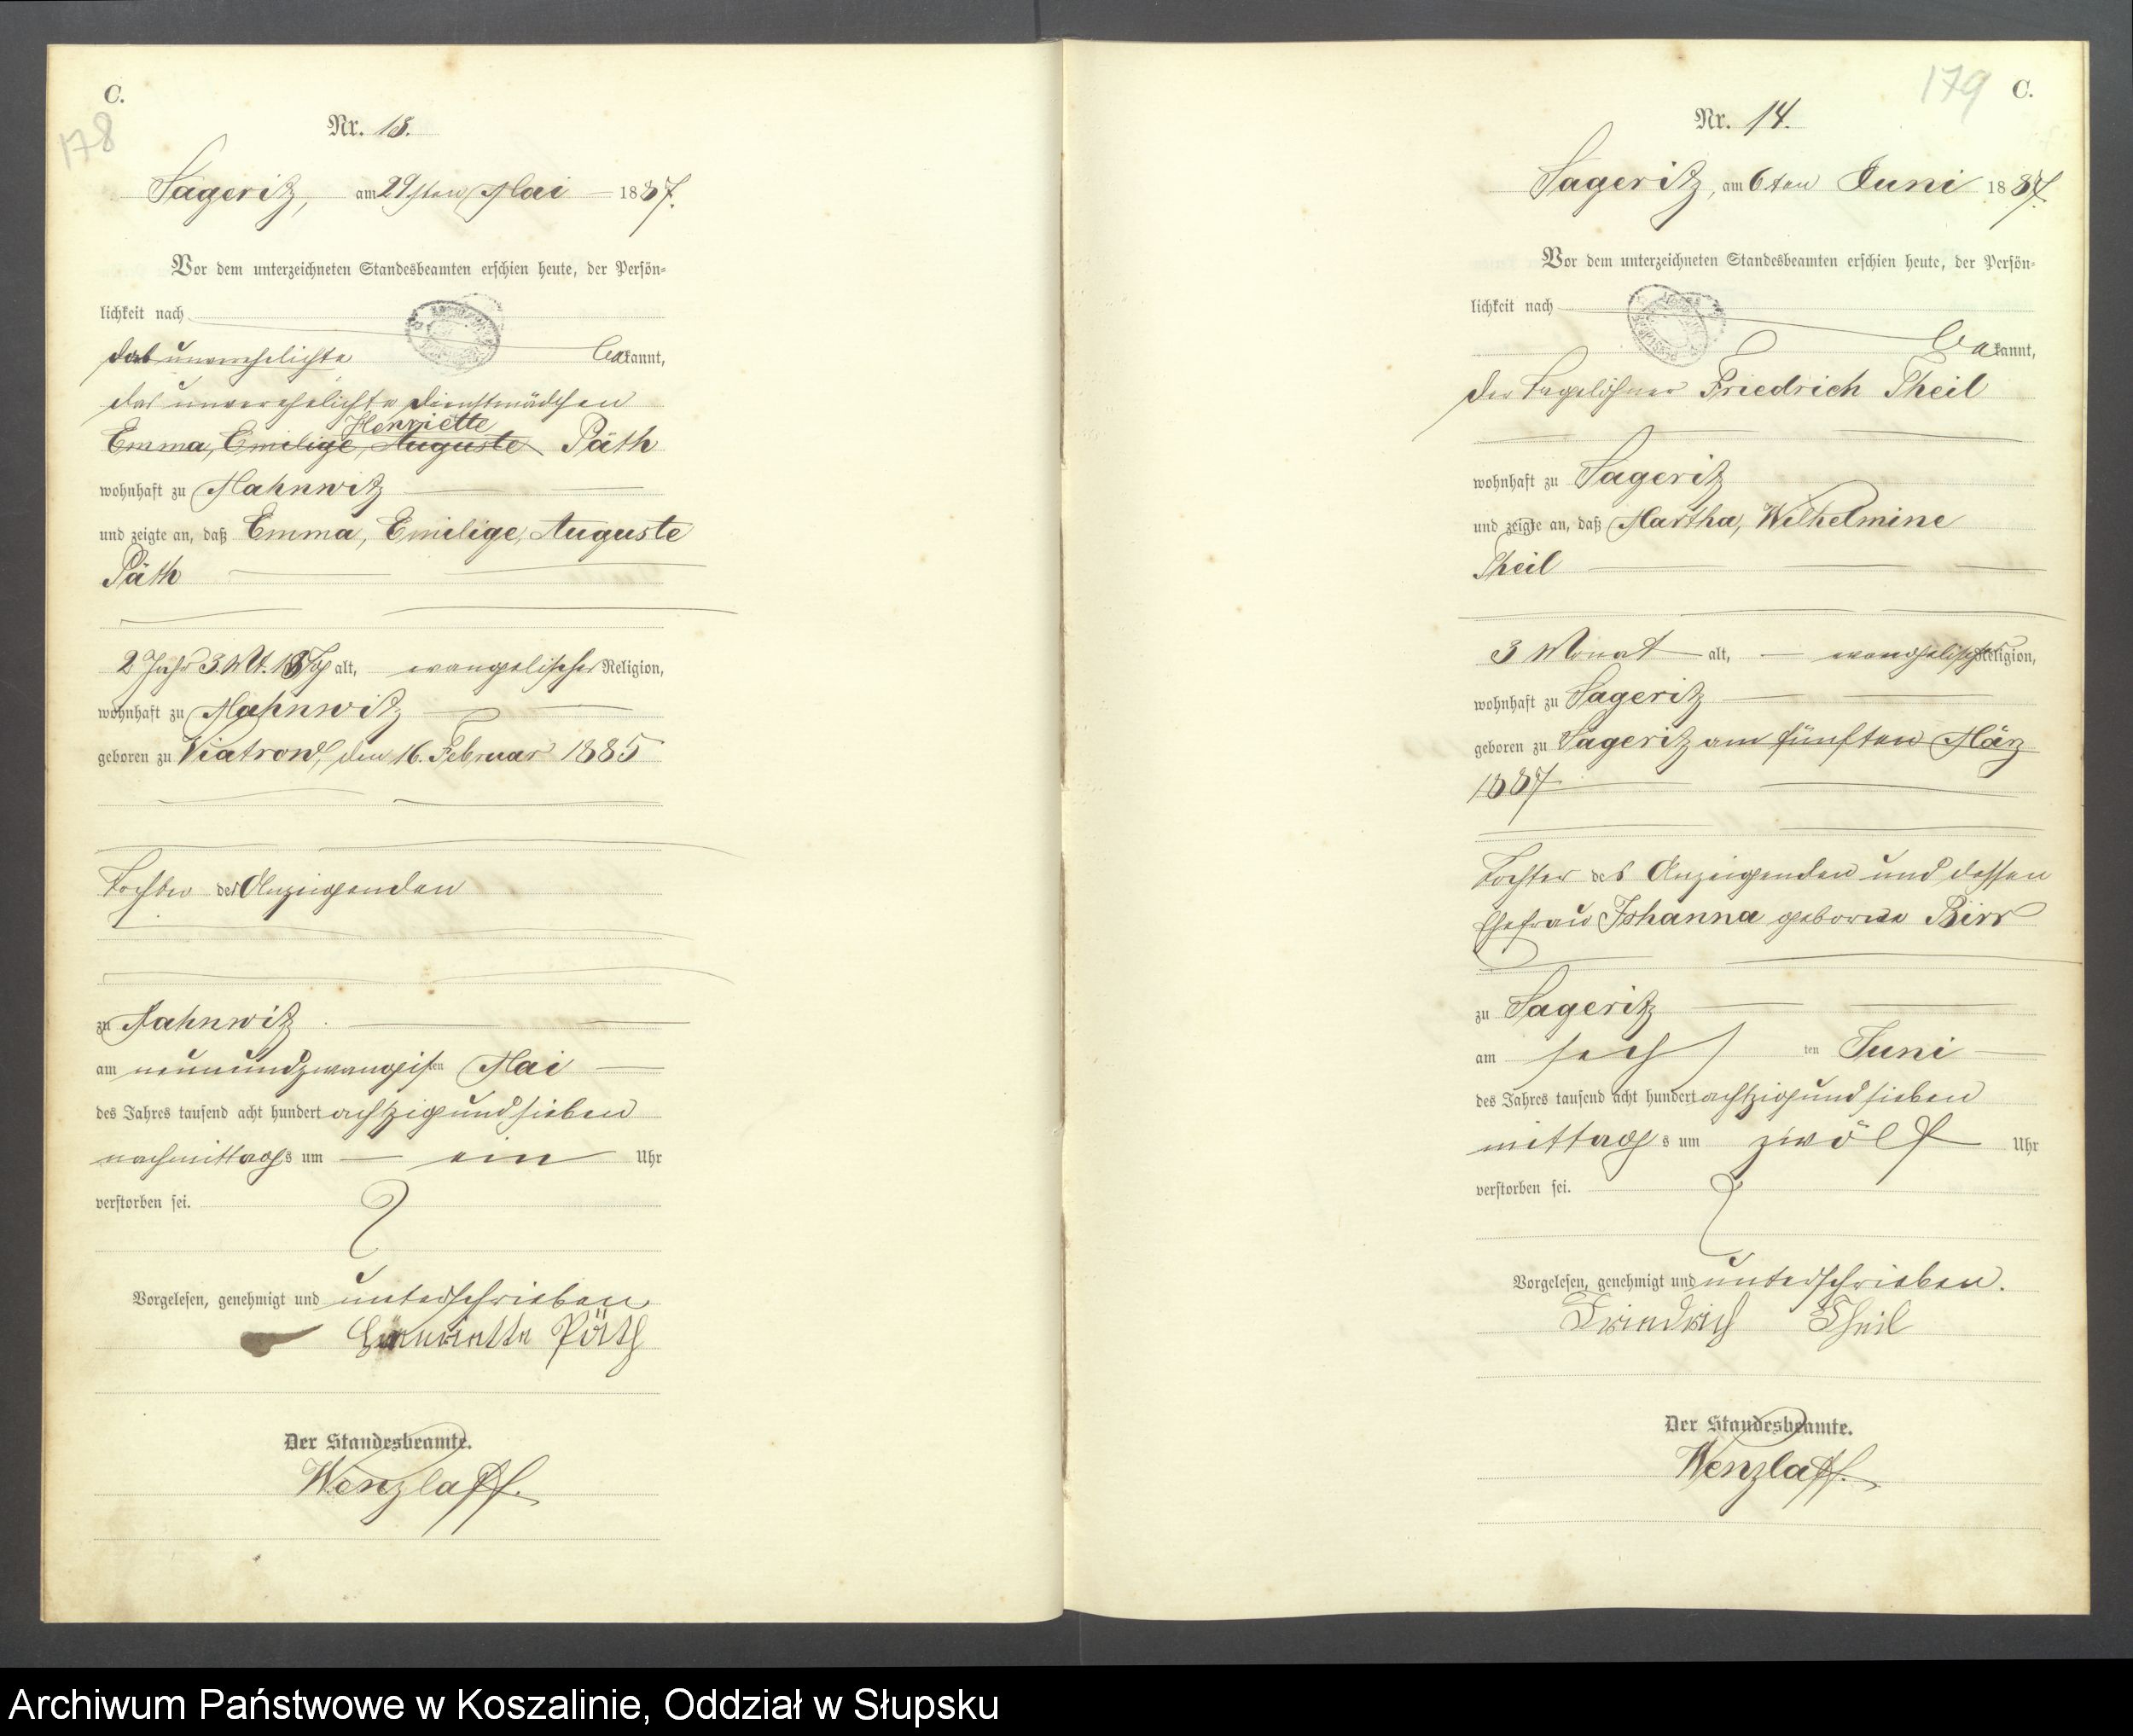 C.
178
Nr. 13.
Sageritz, am 29sten Mai 1887.
Vor dem unterzeichneten Standesbeamten erschien heute, der Persön-
lichkeit nach
das unverehelichte bekannt,
das unverehelichte Dienstmädchen
Henriette
Emma, Emilige, Auguste Päth
wohnhaft zu Mahnwitz
und zeigte an, daß Emma, Emilige, Auguste
Päth
2 Jahr 3 Mt. 13 Tg alt, evangelischer Religion,
wohnhaft zu Mahnwitz
geboren zu Viatrow, den 16. Februar 1885
Tochter der Anzeigenden
zu Mahnwitz
am neunundzwanzigsten Mai
des Jahres tausend acht hundert achtzig und sieben
nachmittags um ein Uhr
verstorben sei.
Vorgelesen, genehmigt und unterschrieben
Henriette Päth
Der Standesbeamte.
Wenzlaff.
179
C.
Nr. 14.
Sageritz, am 6ten Juni 1887.
Vor dem unterzeichneten Standesbeamten erschien heute, der Persön-
lichkeit nach
bekannt,
der Tagelöhner Friedrich Theil
wohnhaft zu Sageritz
und zeigte an, daß Martha, Wilhelmine
Theil
3 Monat alt, evangelischer Religion,
wohnhaft zu Sageritz
geboren zu Sageritz am fünften März
1887
Tochter des Anzeigenden und dessen
Ehefrau Johanna geborne Birr
zu Sageritz
am sechsten Juni
des Jahres tausend acht hundert achtzig und sieben
mittags um zwölf Uhr
verstorben sei.
Vorgelesen, genehmigt und unterschrieben.
Friedrich Theil
Der Standesbeamte.
Wenzlaff.
Archiwum Państwowe w Koszalinie, Oddział w Słupsku